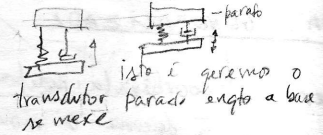 parado
isto é queremos o
transdutor parado enqto a base
se mexe